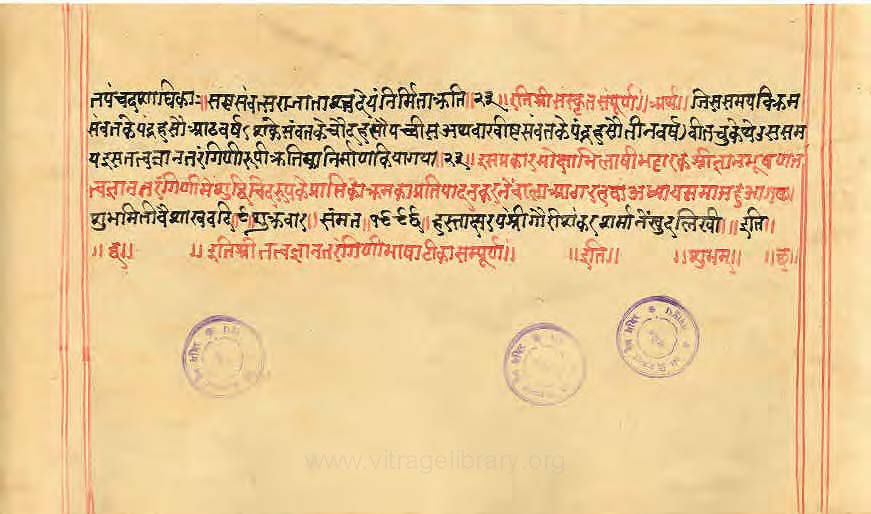 तपंचदशाधिकाः॥सप्तसंवत्सराजाताश्चदेयंनिर्मिताकृति॥२३॥इतिश्रीसंस्कृतसंपूर्णं॥अर्थ॥जिससमयविक्रम
संवतकेपंद्रहसौआठवर्ष(शकेसंवतकेचौदहसौपच्चीसअथवाख्रीष्टसंवतकेपंद्रहसौतीनवर्ष)बीतचुकेथेउससम
यइसतत्त्वज्ञानतरंगिणीरूपीकृतिकानिर्माणकियागया॥२३॥इसप्रकारमोक्षाभिलाषीभट्टारकश्रीज्ञानभूषणनि
तत्त्वज्ञानतरंगिणीमेंशुद्धचिद्रूपकेप्राप्तिकोक्रमकाप्रतिपादनकरनेवालाअठारहवाअध्यायसमाप्तहुआ
शुभमितीवैशाखवदि९शुक्रवार॥संमत॥१९९६॥हस्ताक्षरपंश्रीगौरीशंकरशर्मानेंखुदलिखी॥इति॥
॥छ॥ ॥इतिश्रीतत्त्वज्ञानतरंगिणीभाषाटीकासम्पूर्ण॥ ॥इति॥ ॥शुभम्॥ ॥छ॥
www.vitragelibrary.org